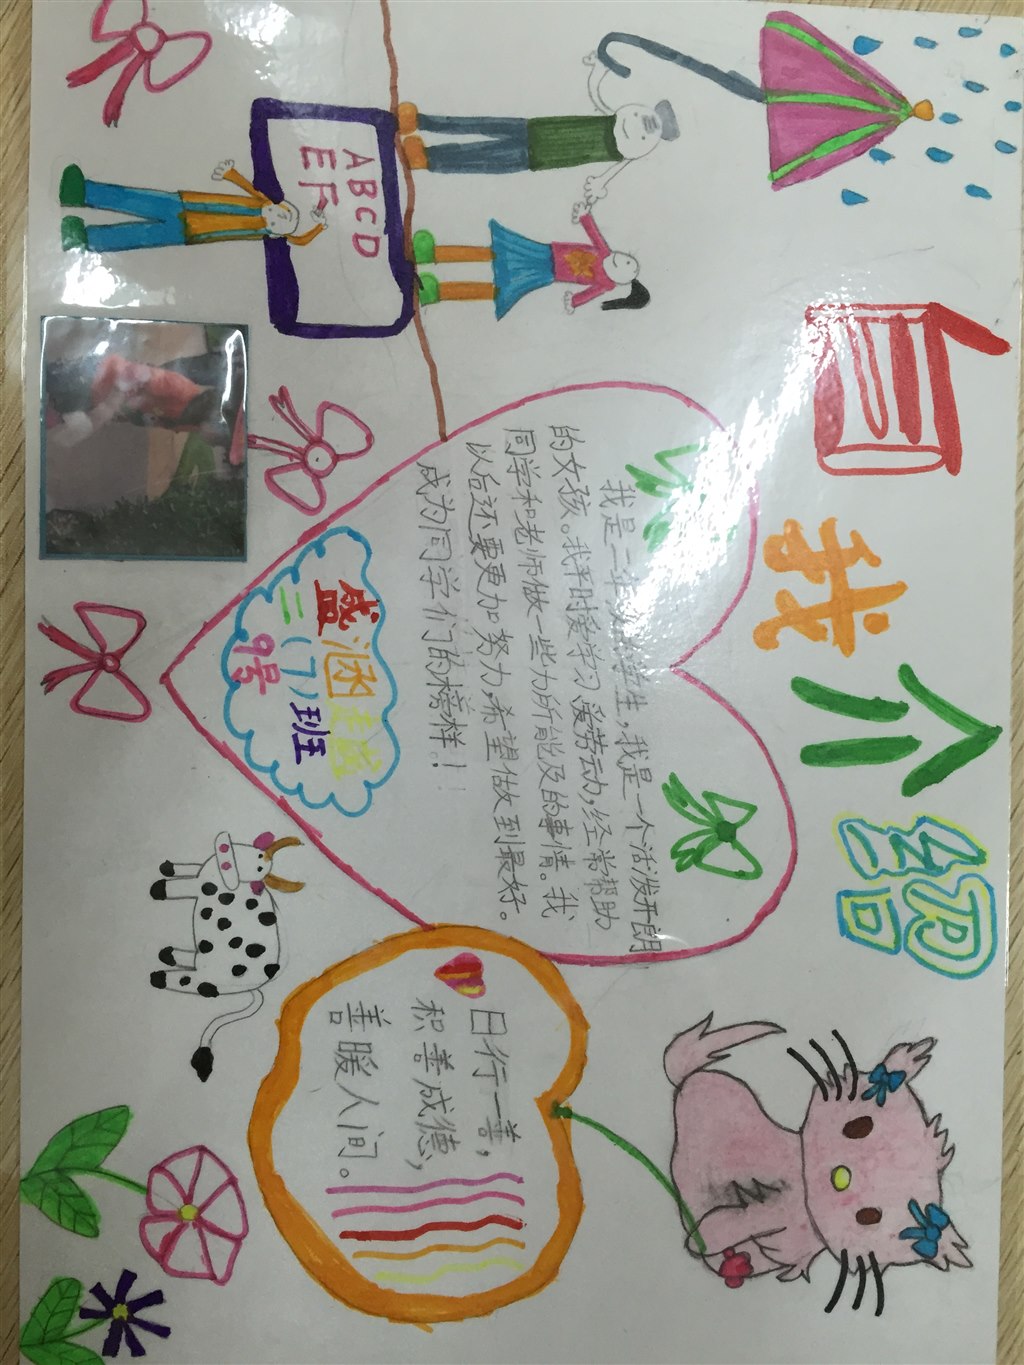 自我介绍
ABCD
EF
我是二年级的学生,我是一个活泼开朗
的女孩。我平时爱学习 爱劳动,经常帮助
同学和老师做一些力所能及的事情。我
以后还要更加努力,希望做到最好。
成为同学们的榜样!
盛涵
二(7)班
9号
日行一善,
积善成德,
善暖人间。